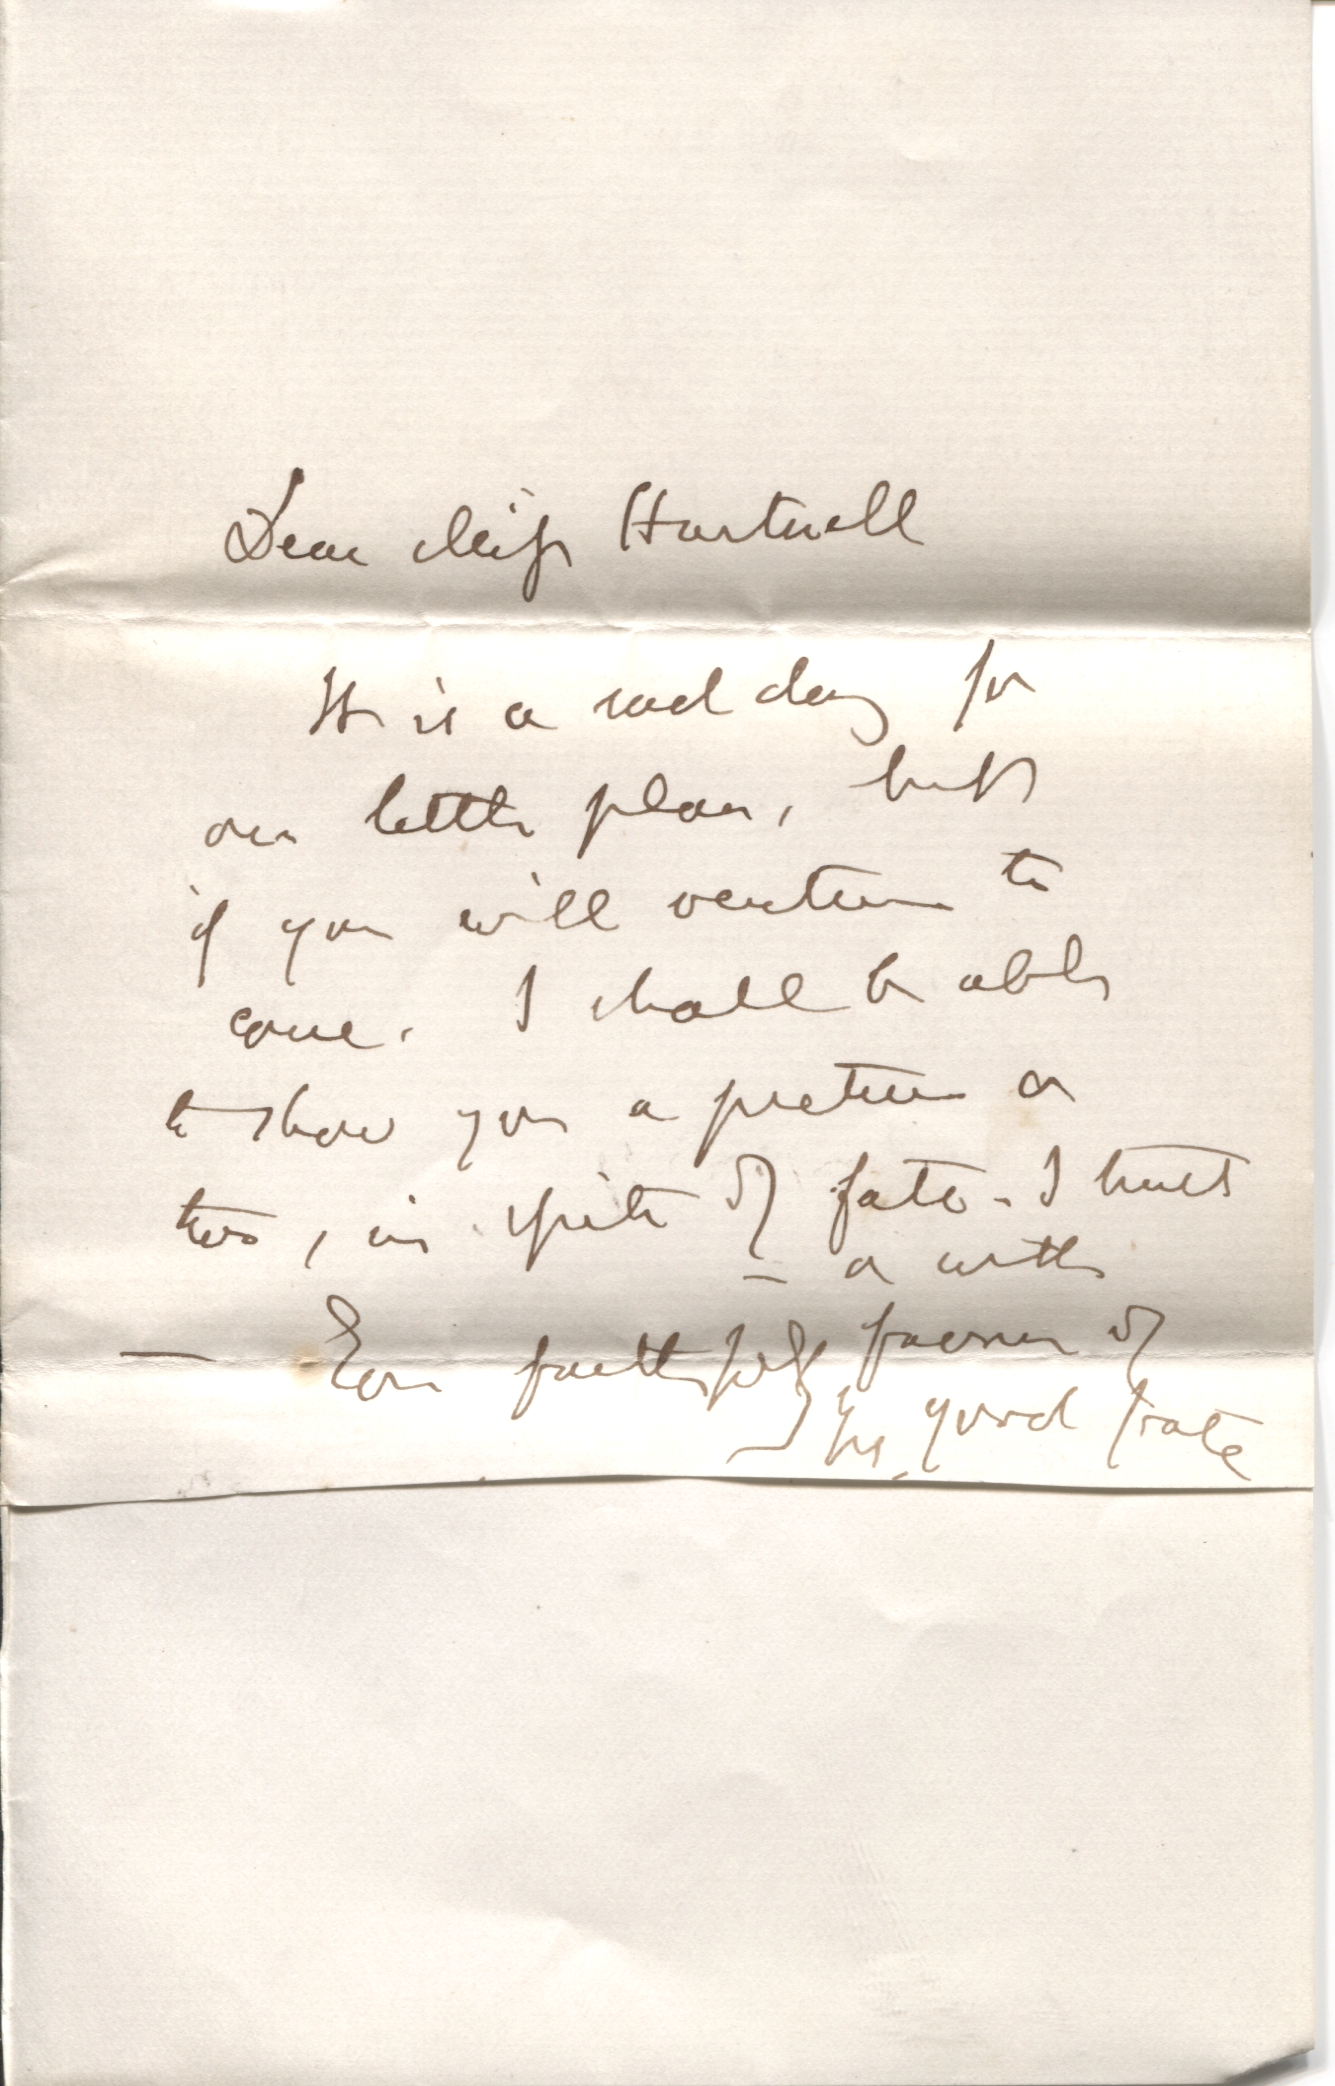 Dear Miss Hartwell
It is a sad day for
our little plan, but
if you will venture to
come. I shall be able
to show you a picture or
two, in spite of fate - I trust
— or with
— Ever faithfully favour of
the good fate